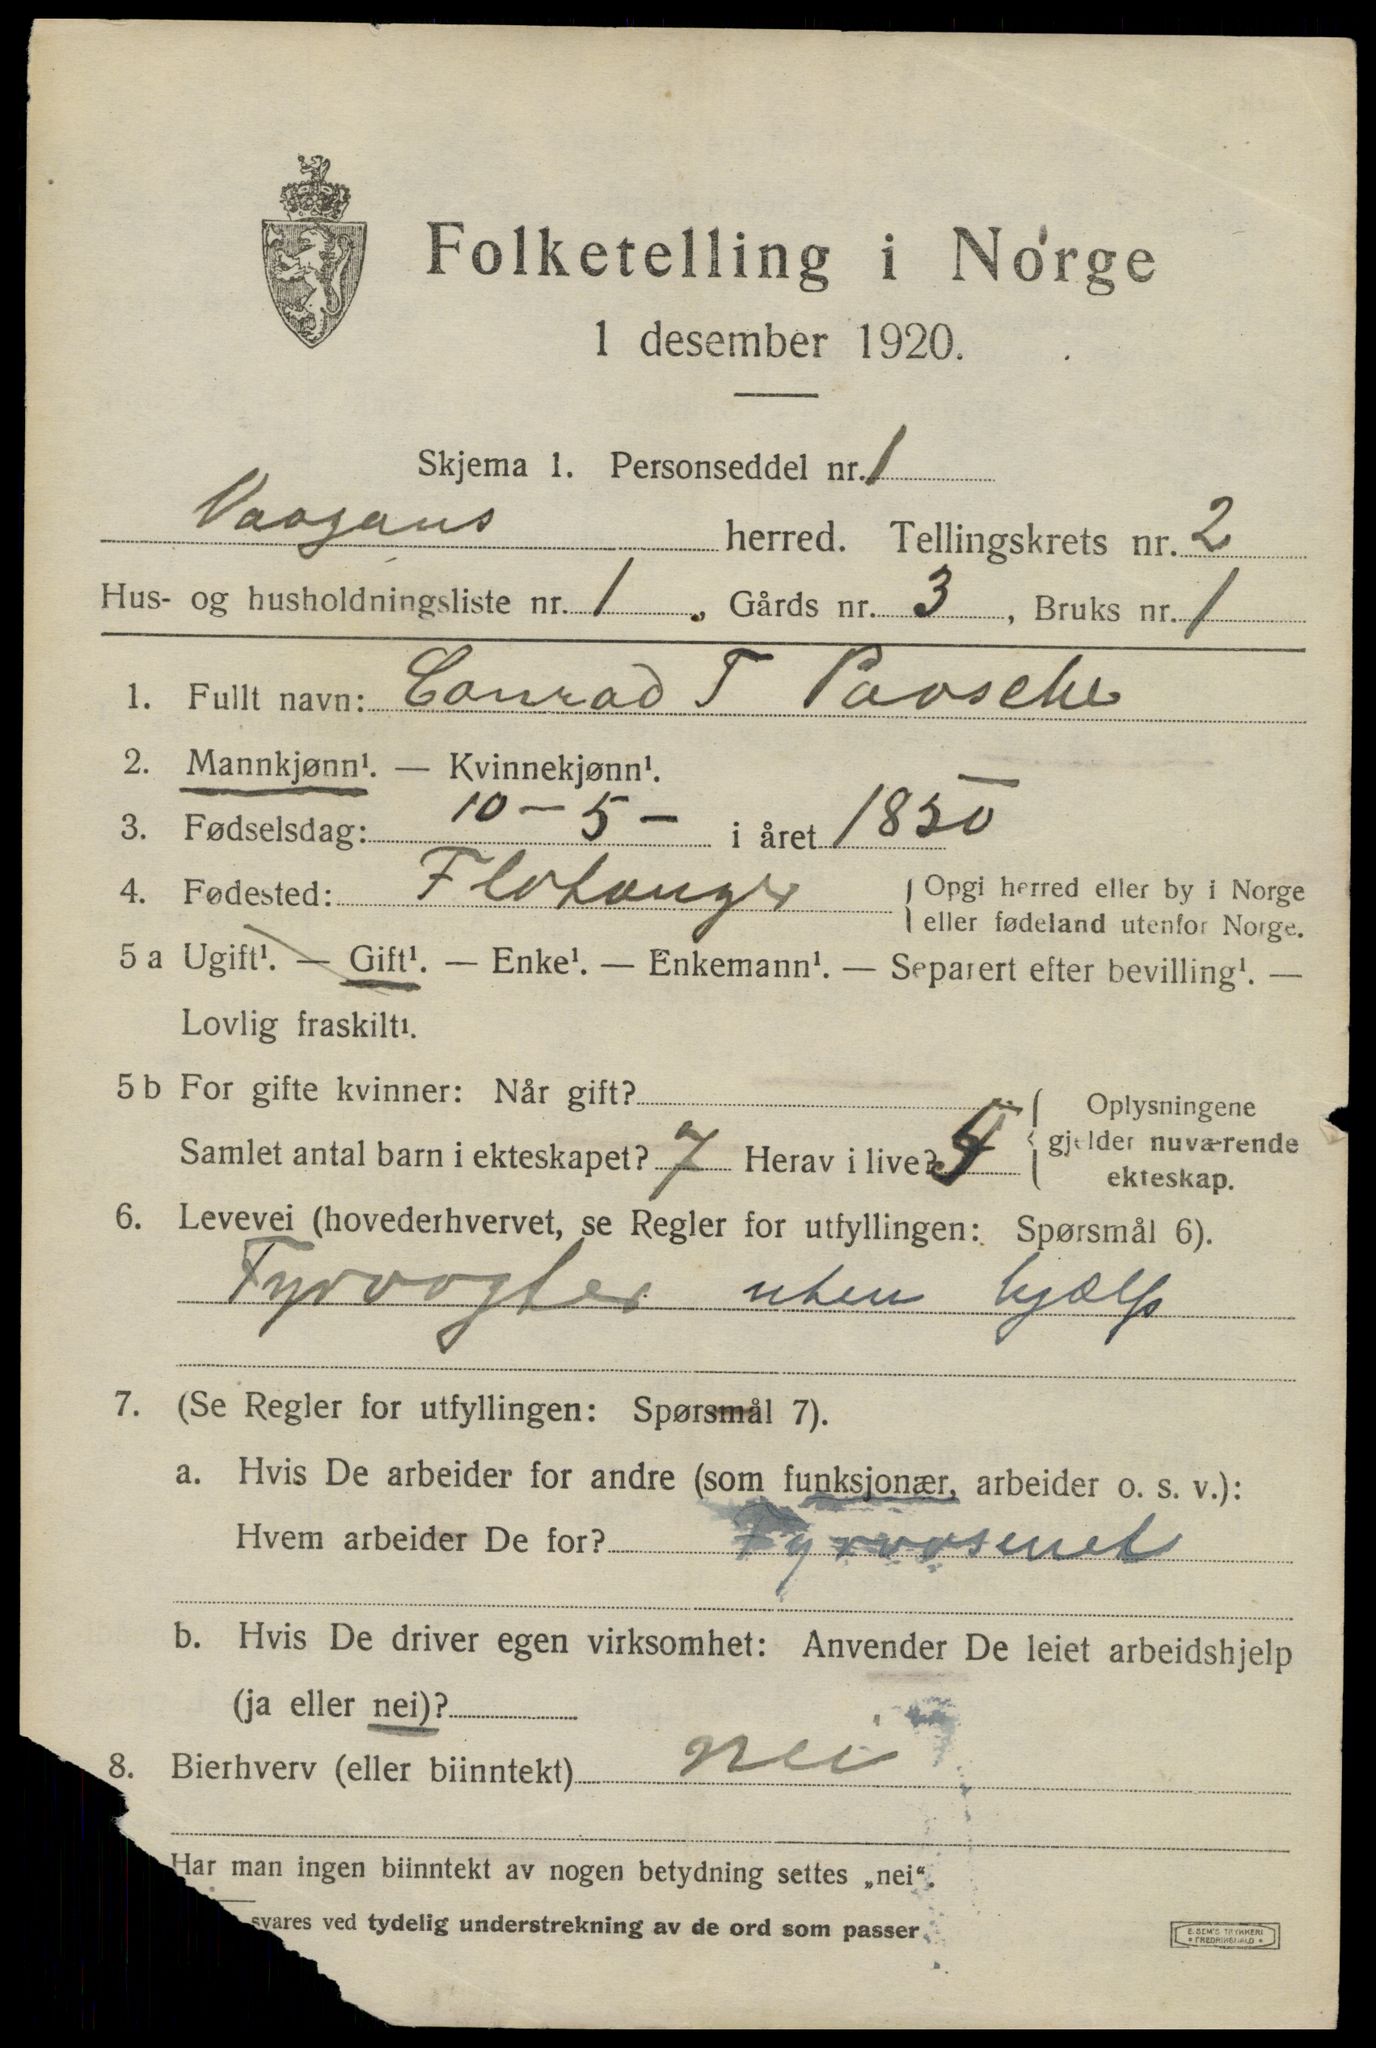 Folketelling i Norge
1 desember 1920.
Skjema 1. Personseddel nr. 1
Vaagans herred. Tellingskrets nr. 2
Hus- og husholdningsliste nr. 1, Gårds nr. 3, Bruks nr. 1
1. Fullt navn: Conrad T Paasche
2. Mannkjønn¹. — Kvinnekjønn¹.
3. Fødselsdag: 10 - 5 - i året 1850
4. Fødested: Opgi herred eller by i Norge
eller fødeland utenfor Norge.
5 a Ugift¹. — Gift¹. — Enke¹. — Enkemann¹. — Separert efter bevilling¹. —
Lovlig fraskilt¹.
5 b For gifte kvinner: Når gift?
Samlet antal barn i ekteskapet? 7 Herav i live?
Oplysningene
gjelder nuværende
ekteskap.
6. Levevei (hovederhvervet, se Regler for utfyllingen: Spørsmål 6).
Fyrvogter uten hjælp
7. (Se Regler for utfyllingen: Spørsmål 7).
a. Hvis De arbeider for andre (som funksjonær, arbeider o. s. v.):
Hvem arbeider De for? Fyrvæsenet
b. Hvis De driver egen virksomhet: Anvender De leiet arbeidshjelp
(ja eller nei)?
8. Bierhverv (eller biinntekt) nei
Har man ingen biinntekt av nogen betydning settes „nei“.
svares ved tydelig understrekning av de ord som passer
E. SEM'S TRYKKERI
FREDRIKSHALD